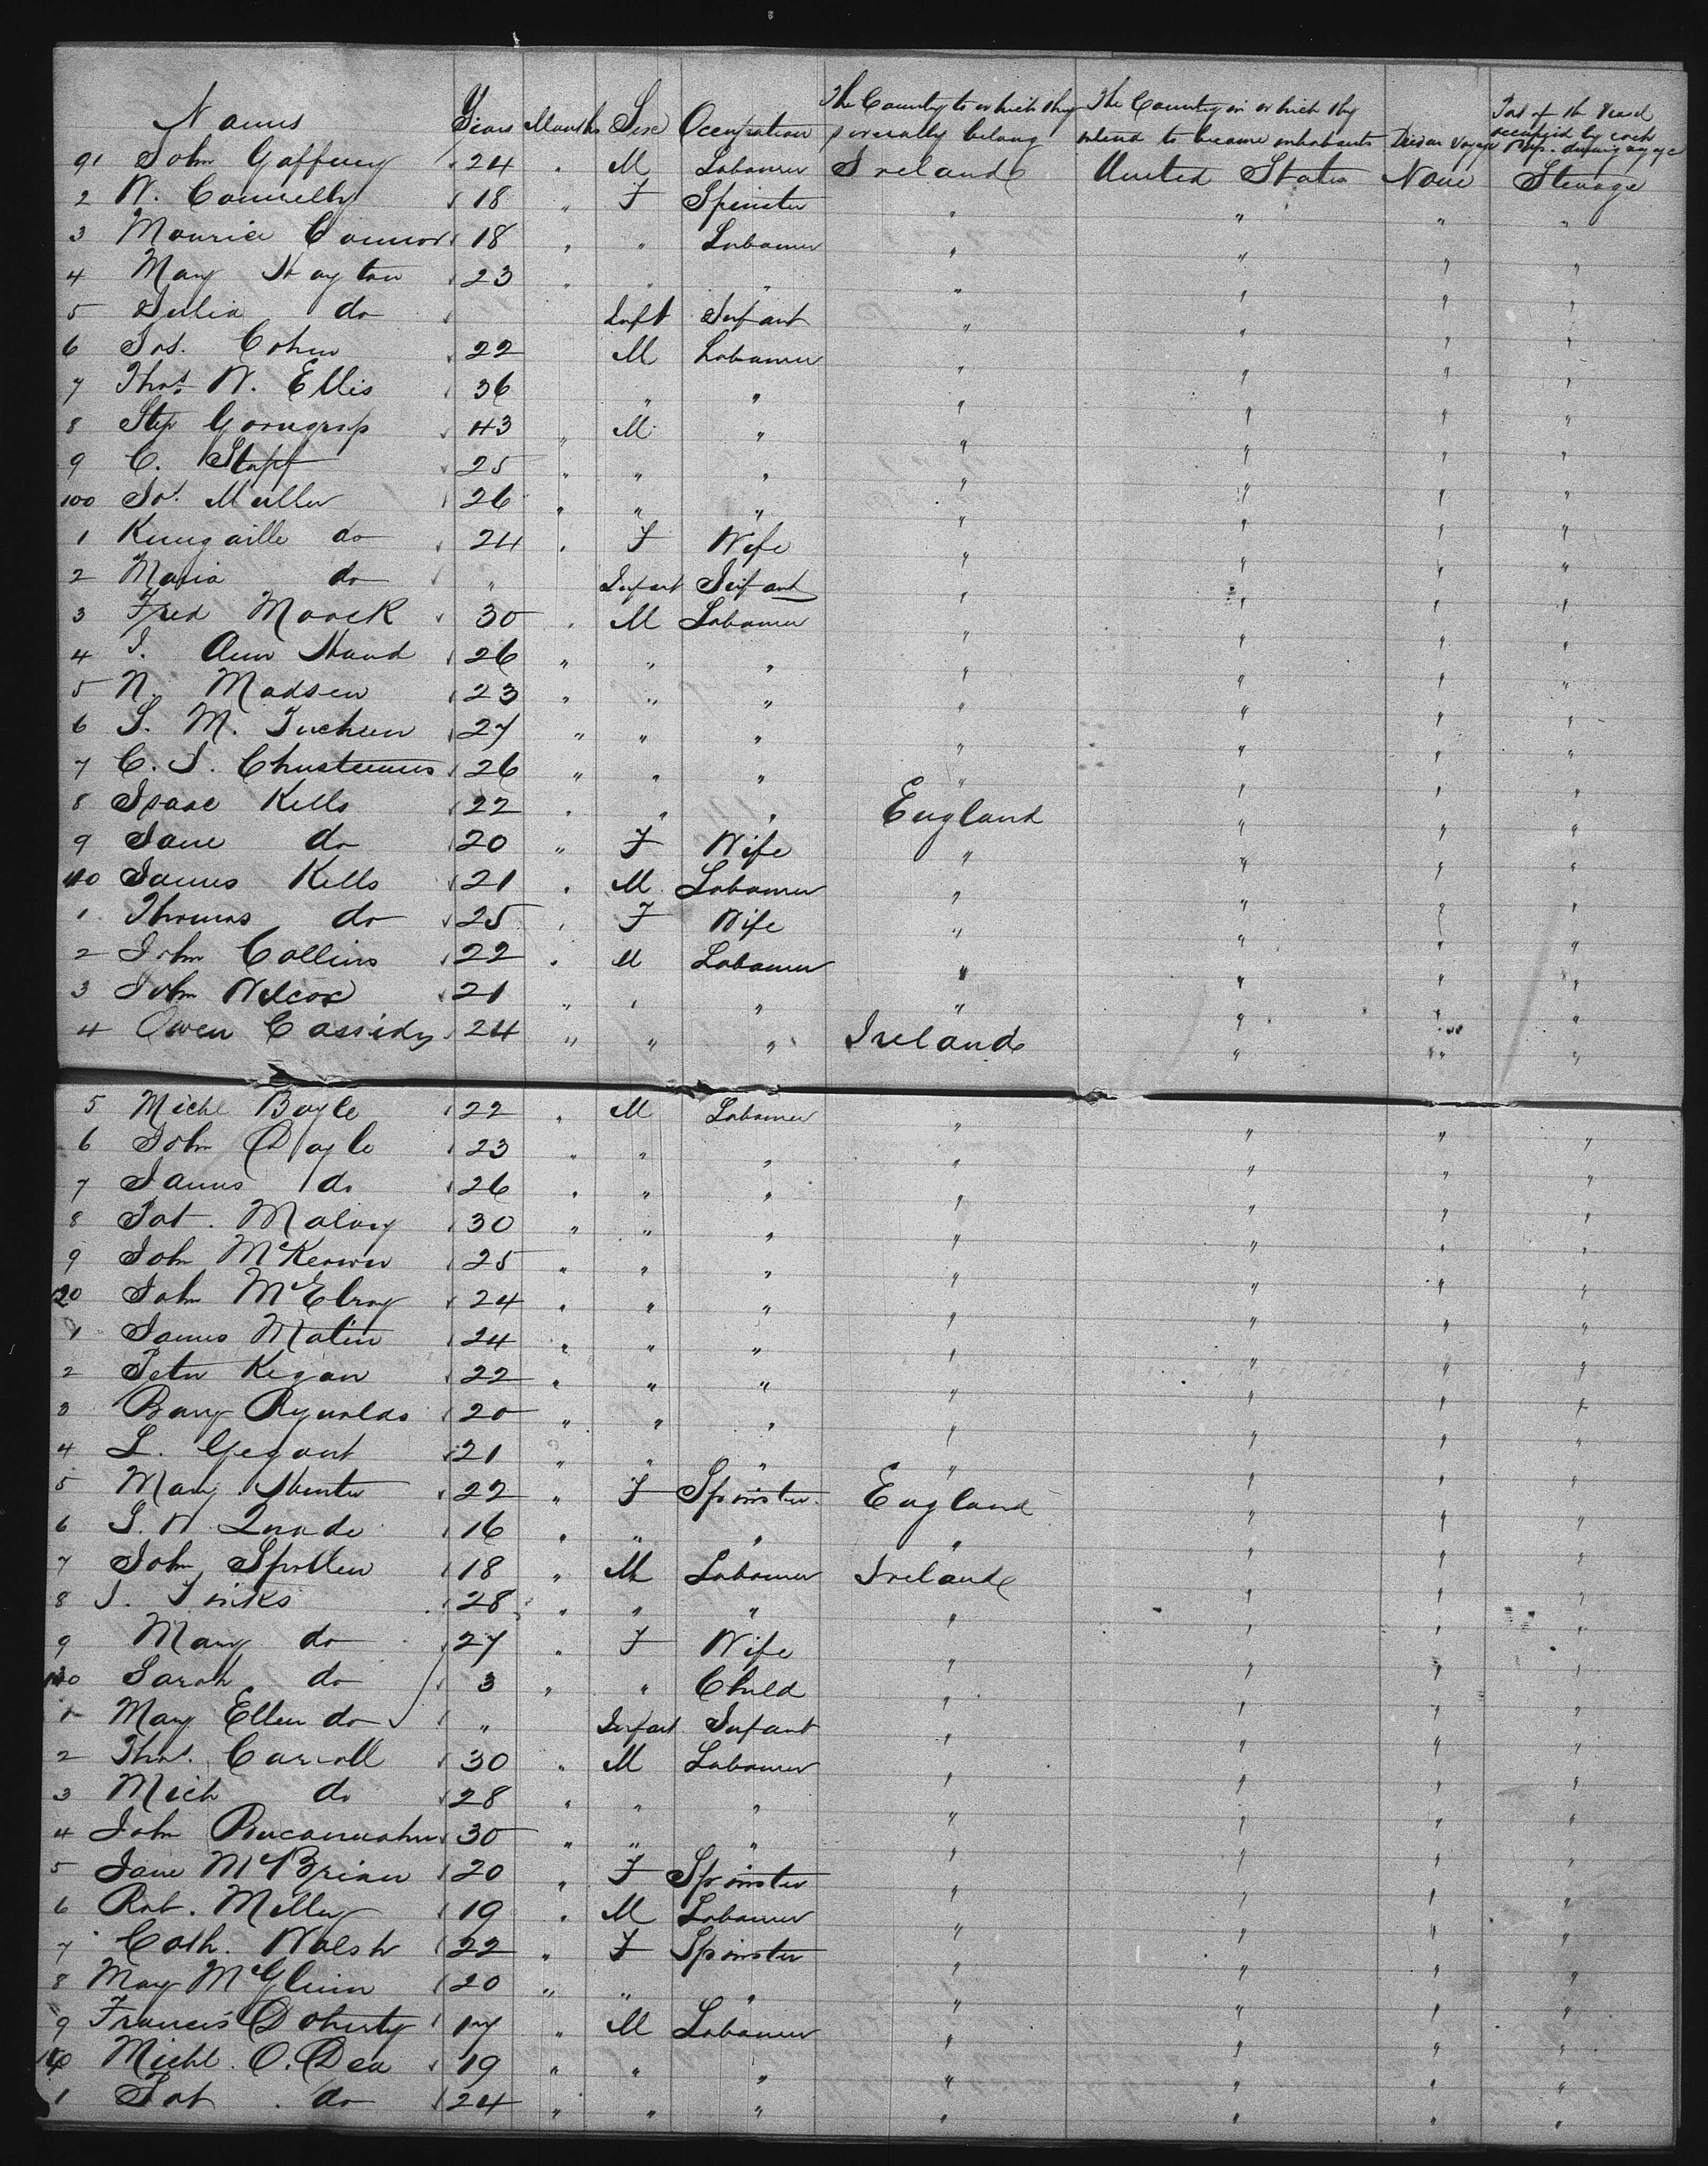 Names Years Months Sex Occupation The Country to which they severally belong The Country in which they intend to become inhabitants Died on Voyage Part of the Vessel occupied by each Pass. during voyage
91 John Gaffney 24 " M Labourer Ireland United States None Steerage
2 N. Connelly 18 " F Spinster " " " "
3 Maurice Connor 18 " " Labourer " " " "
4 Mary Hayton 23 " " " " " " "
5 Julia do Inft Infant " " " "
6 Jos. Cohen 22 M Labourer " " " "
7 Thos. W. Ellis 36 " " " " " "
8 Step 43 " M " " " " "
9 C. Stapf 25 " " " " " " "
100 Jos. Muller 26 " " " " " " "
1 do 24 " F Wife " " " "
2 Maria do " Infant Infant " " " "
3 Fred Moock 30 " M Labourer " " " "
4 26 " " " " " " "
5 N. Madsen 23 " " " " " " "
6 S. M. 27 " " " " " " "
7 C. J. 26 " " " " " " "
8 Isaac Kells 22 " " " England " " "
9 Jane do 20 " F Wife " " " "
110 James Kells 21 " M Labourer " " " "
1 Thomas do 25 " F Wife " " " "
2 John Collins 22 " M Labourer " " " "
3 John Wilcox 21 " " " " " " "
4 Owen Cassidy 24 " " " Ireland " " "
5 Michl Boyle 22 " M Labourer " " " "
6 John Doyle 23 " " " " " " "
7 James do 26 " " " " " " "
8 Pat. Malony 30 " " " " " " "
9 John McKeown 25 " " " " " " "
120 John McElroy 24 " " " " " " "
1 James Matin 24 " " " " " " "
2 Peter Kegan 22 " " " " " " "
3 Barry Reynolds 20 " " " " " " "
4 L. Gegant 21 " " " " " " "
5 Mary Hunter 22 " F Spinster England " " "
6 S. W. Quade 16 " " " " " " "
7 John Spollen 18 " M Labourer Ireland " " "
8 J. Jinks 28 " " " " " " "
9 Mary do 27 " F Wife " " " "
130 Sarah do 3 " " Child " " " "
1 Mary Ellen do " Infant Infant " " " "
2 Thos. Carroll 30 " M Labourer " " " "
3 Mich do 28 " " " " " " "
4 John 30 " " " " " " "
5 Jane McBrian 20 " F Spinster " " " "
6 Rob. 19 " M Labourer " " " "
7 Cath. Walsh 22 " F Spinster " " " "
8 Mary McGlinn 20 " " " " " " "
9 Francis Doherty 17 " M Labourer " " " "
140 Michl. O.Dea 19 " " " " " " "
1 Pat do 24 " " " " " " "